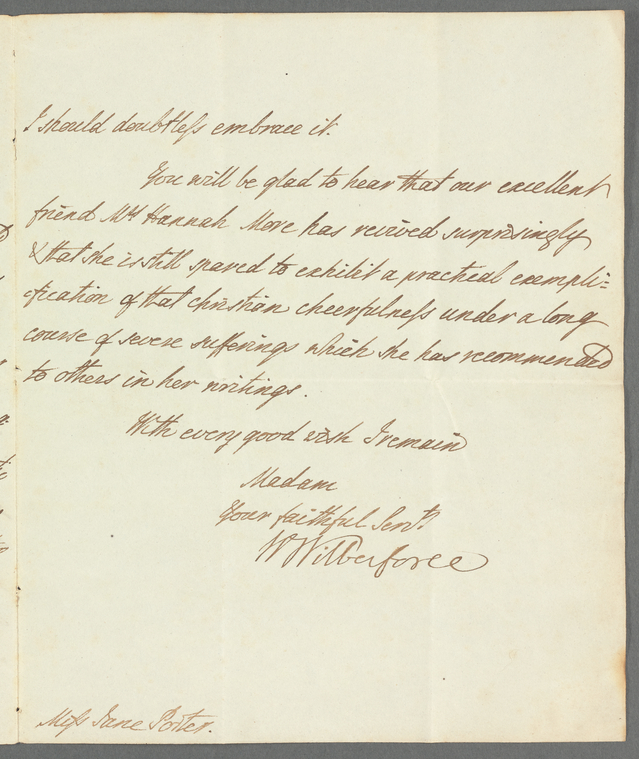 I should doubtless embrace it.
You will be glad to hear that our excellent
friend Mrs Hannah More has revived surprisingly
& that she is still spared to exhibit a practical exempli=
fication of that christian cheerfulness under a long
course of severe sufferings which she has recommended
to others in her writings.
With every good wish I remain
Madam
Your faithful Servt
W Wilberforce
Miss Jane Porter.